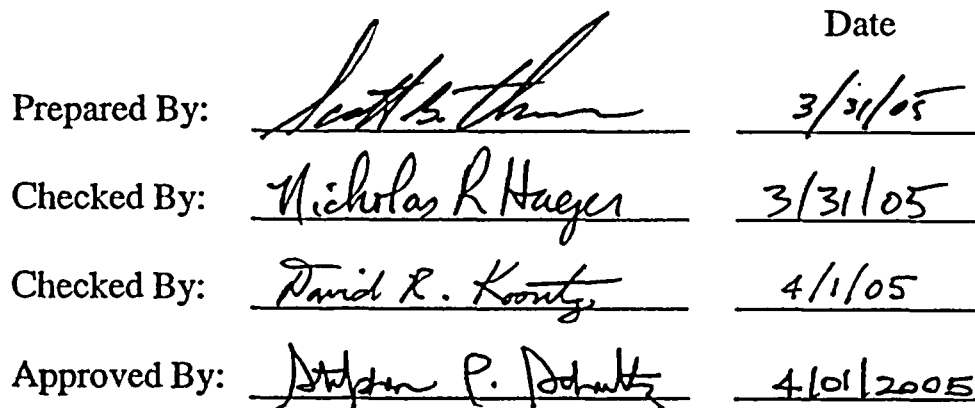 Date
Prepared By: Scott B. 3/31/05
Checked By: Nicholas R Hager 3/31/05
Checked By: David R. Koontz 4/1/05
Approved By: Stephen P. Schultz 4/01/2005